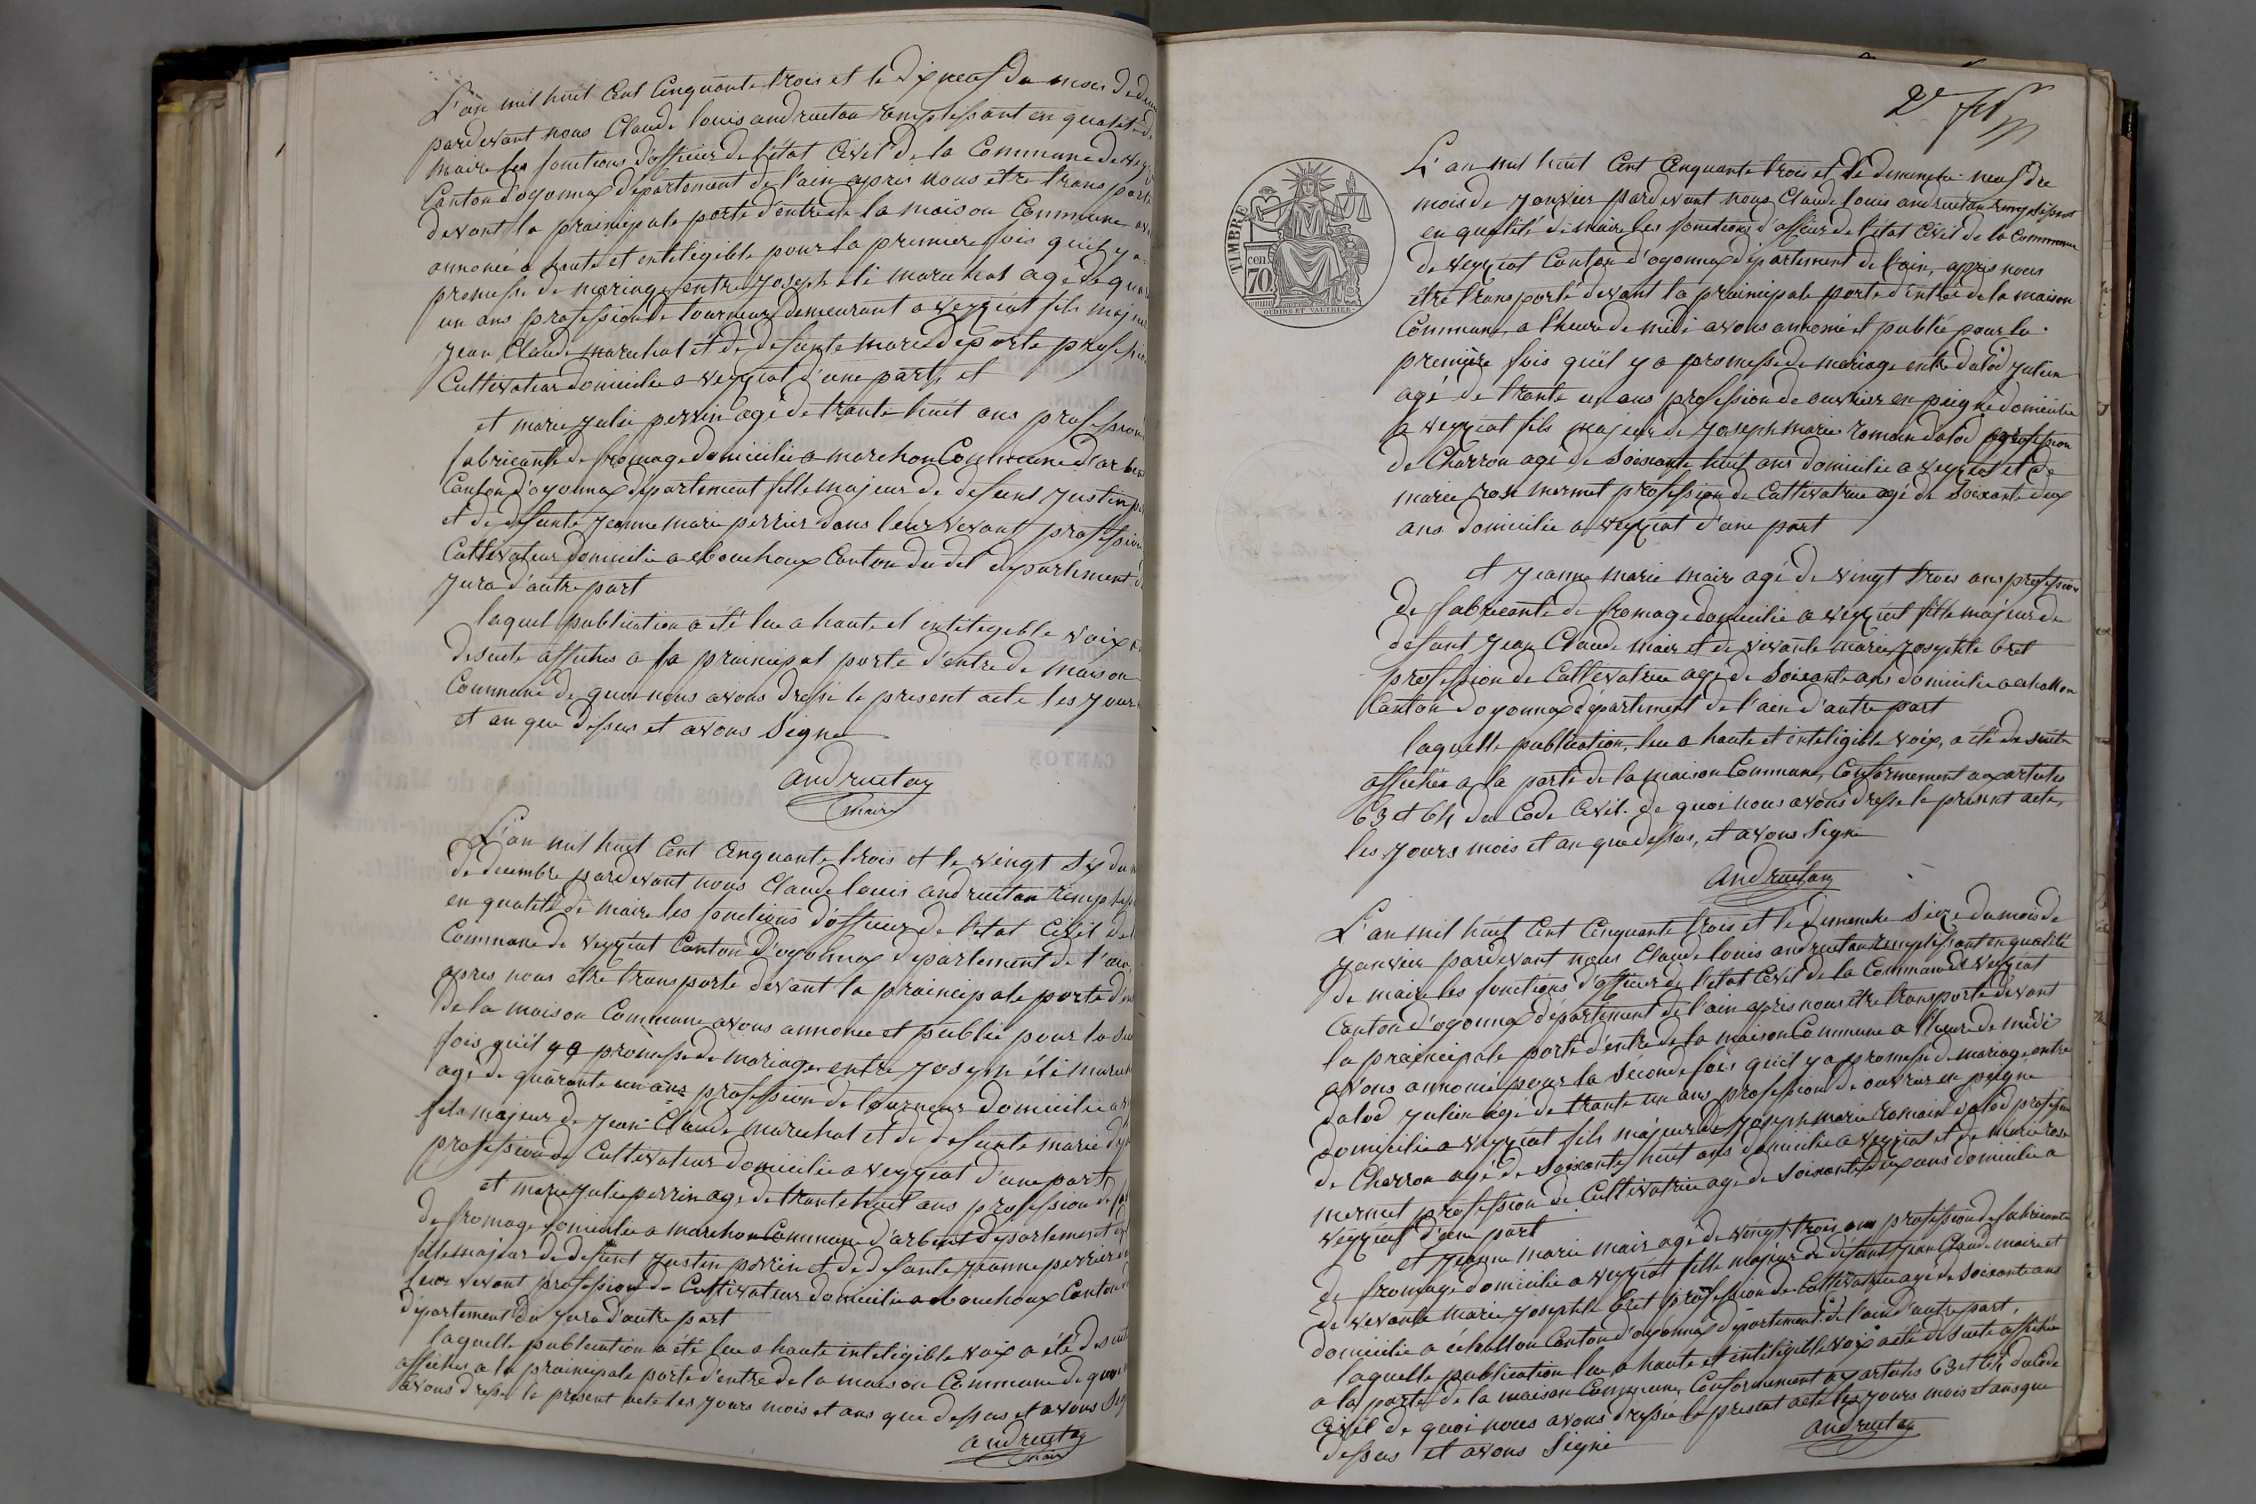 L'an mil huit Cent Cinquante trois et le dix neuf du mois de
pardevant nous Claude louis andruetan remplissant en qualité de
maire les fonctions d'officier de l'état Civil de la Commune de
Canton d'oyonnax département de l'ain apres nous être transporté
devant la prainsipale porte d'entré de la maison Commune
annoncé a haute et inteligible pour la premiere fois quil y a
promesse de mariage entre Joseph éli marechal agé de
un ans profession de tourneur demeurant a veyziat fils majeur
jean Claude marechal et de defunte marie deporte profession
Cultivateur domicilie a veyziat d'une part, et
et marie julie perrin agé de trante huit ans profession
fabricante de fromage domicilie a marchon Commune d'arbent
Canton d'oyonnax département fille majeur de defunt justin
et de defunte jeanne marie perrier dans leur vivant profession
Cultivateur domicilie a bouchoux Canton du dit département
jura d'autre part
laquel publication a été lue a haute et inteligible voix
desuite affiches a la prainsipal porte d'entre de maison
Commune de quoi nous avons dressé le present acte les jours
et an que dessus et avons Signe
andruetan
maire
L'an mil huit Cent Cinquante trois et le vingt Six du
de decembre pardevant nous Claude louis andruetan
en qualité de maire les fonctions d'officier de l'état Civil de
Commune de veyziat Canton d'oyonnax département de l'ain
apres nous être transporté devant la prainsipale porte
de la maison Commune avons annoncé et publié pour la
fois quil y a promesse de mariage entre joseph éli
agé de quarante un ans profession de tourneur domicilie a
fils majeur de jean Claude marechal et de defunte marie
profession de Cultivateur domicilie a veyziat d'une part
et marie julie perrin agé de trante huit ans profession de
de fromage domicilie a marchon Commune d'arbent département
fille majeur de defunt justin perrin et de defunte jeanne perrier
leur vivant profession de Cultivateur domicilie a bouchoux Canton
département du jura d'autre part
laquelle publication a été lue a haute inteligible voix a été de suite
affiches a la prainsipale porte d'entre de la maison Commune de quoi
avons dressé le present acte les jours mois et ans que dessus et avons
andruetan
maire
2e
TIMBRE
70 cen.
OUDINE ET VAUTHIER
L'an mil huit Cent Cinquante trois et le dimenche neuf de
mois de janvier pardevant nous Claude louis andruetan remplissant
en qualité de maire les fonctions d'officier de l'état Civil de la Commune
de veyziat Canton d'oyonnax département de l'ain, apris nous
être transporté devant la prainsipale porte d'entré de la maison
Commune a l'heure de midi avons annoncé et publié pour la
premiere fois quil y a promesse de mariage entre dalod julien
agé de trante un ans profession de ouvrier en peigne domicilie
a veyziat fils majeur de joseph marie romain dalod profession
de Charron agé de Soixante huit ans domicilie a veyziat et de
marie rose mermet profession de Cultivatrice agé de Soixante deux
ans domicilie a veyziat d'une part
et jeanne marie maire agé de vingt trois ans profession
de fabricante de fromage domicilie a veyziat fille majeur de
defunt jean Claude maire et de vivante marie josephte bret
profession de Cultivatrice agé de Soixante ans domicilie a echallon
Canton d'oyonnax département de l'ain d'autre part
laquelle publication, lue a haute et inteligible voix, a été de suite
affichée a la porte de la maison Commune, Conformement aux articles
63 et 64 du Code Civil. de quoi nous avons dresse le present acte,
les jours mois et an que dessus, et avons Signe
andruetan
L'an mil huit Cent Cinquante trois et le dimenche Seize du mois de
janvier pardevant nous Claude louis andruetan remplissant en qualité
de maire les fonctions d'officier de l'état Civil de la Commune de veyziat
Canton d'oyonnax département de l'ain apris nous être transporté devant
la prainsipale porte d'entre de la maison Commune a l'heure de midi
avons annoncé pour la Séconde fois quil y a promesse de mariage entre
dalod julien agé de trante un ans profession de ouvrier en peigne
domicilie a veyziat fils majeur de joseph marie romain dalod profession
de Charron agé de Soixante huit ans domicilie a veyziat et de marie rose
mermet profession de Cultivatrice agé de Soixante deux ans domicilie a
veyziat d'une part
et jeanne marie maire agé de vingt trois ans profession de fabricante
de fromage domicilie a veyziat fille majeur de défunt jean Claude maire et
de vivante marie josephte bret profession de Cultivatrice agé de Soixante ans
domicilie a échallon Canton d'oyonnax département de l'ain d'autre part.
laquelle publication lue a haute et inteligible voix a été de suite affichée
a la porte de la maison Commune, Conformement aux articles 63 et 64 du Code
Civil de quoi nous avons dressé le present acte les jours mois et ans que
dessus et avons Signé
andruetan